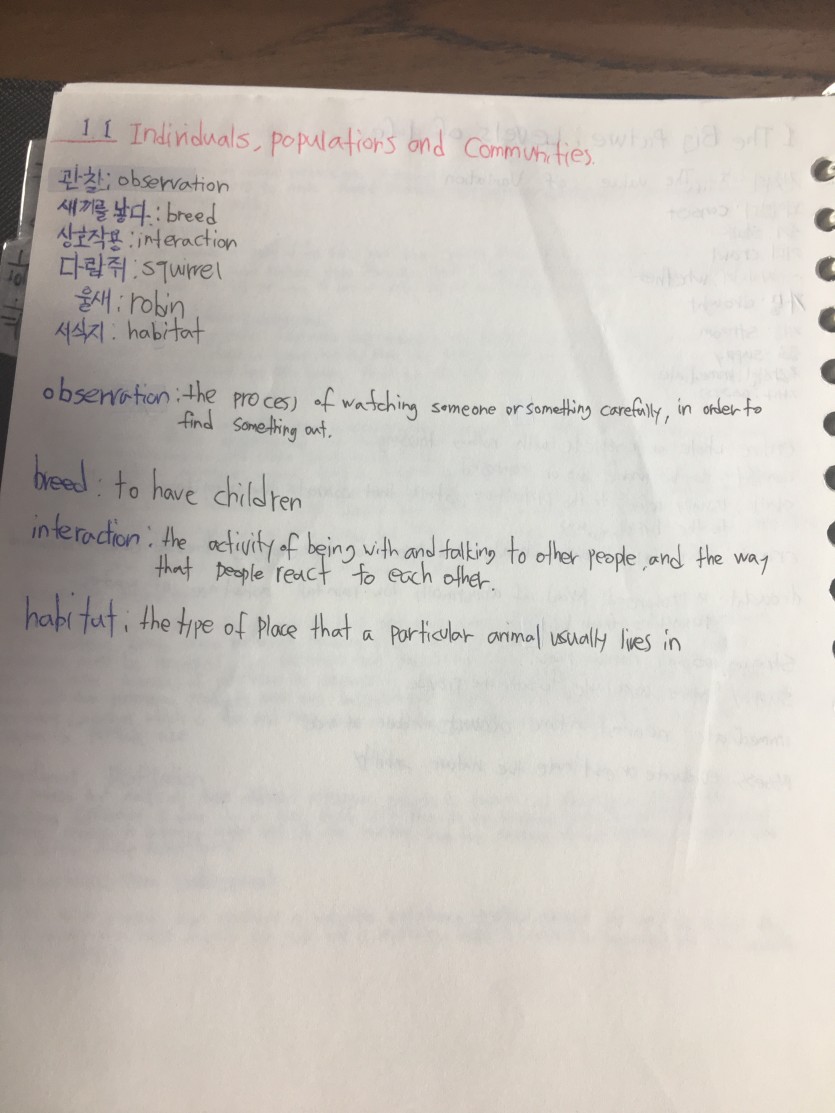 1 1 Individuals, populations and Communities.
관찰: observation
새끼를 낳다: breed
상호작용: interaction
다람쥐: squirrel
울새: robin
서식지: habitat
observation: the process of watching someone or something carefully, in order to
find something out.
breed: to have children
interaction: the activity of being with and talking to other people, and the way
that people react to each other.
habitat: the type of place that a particular animal usually lives in